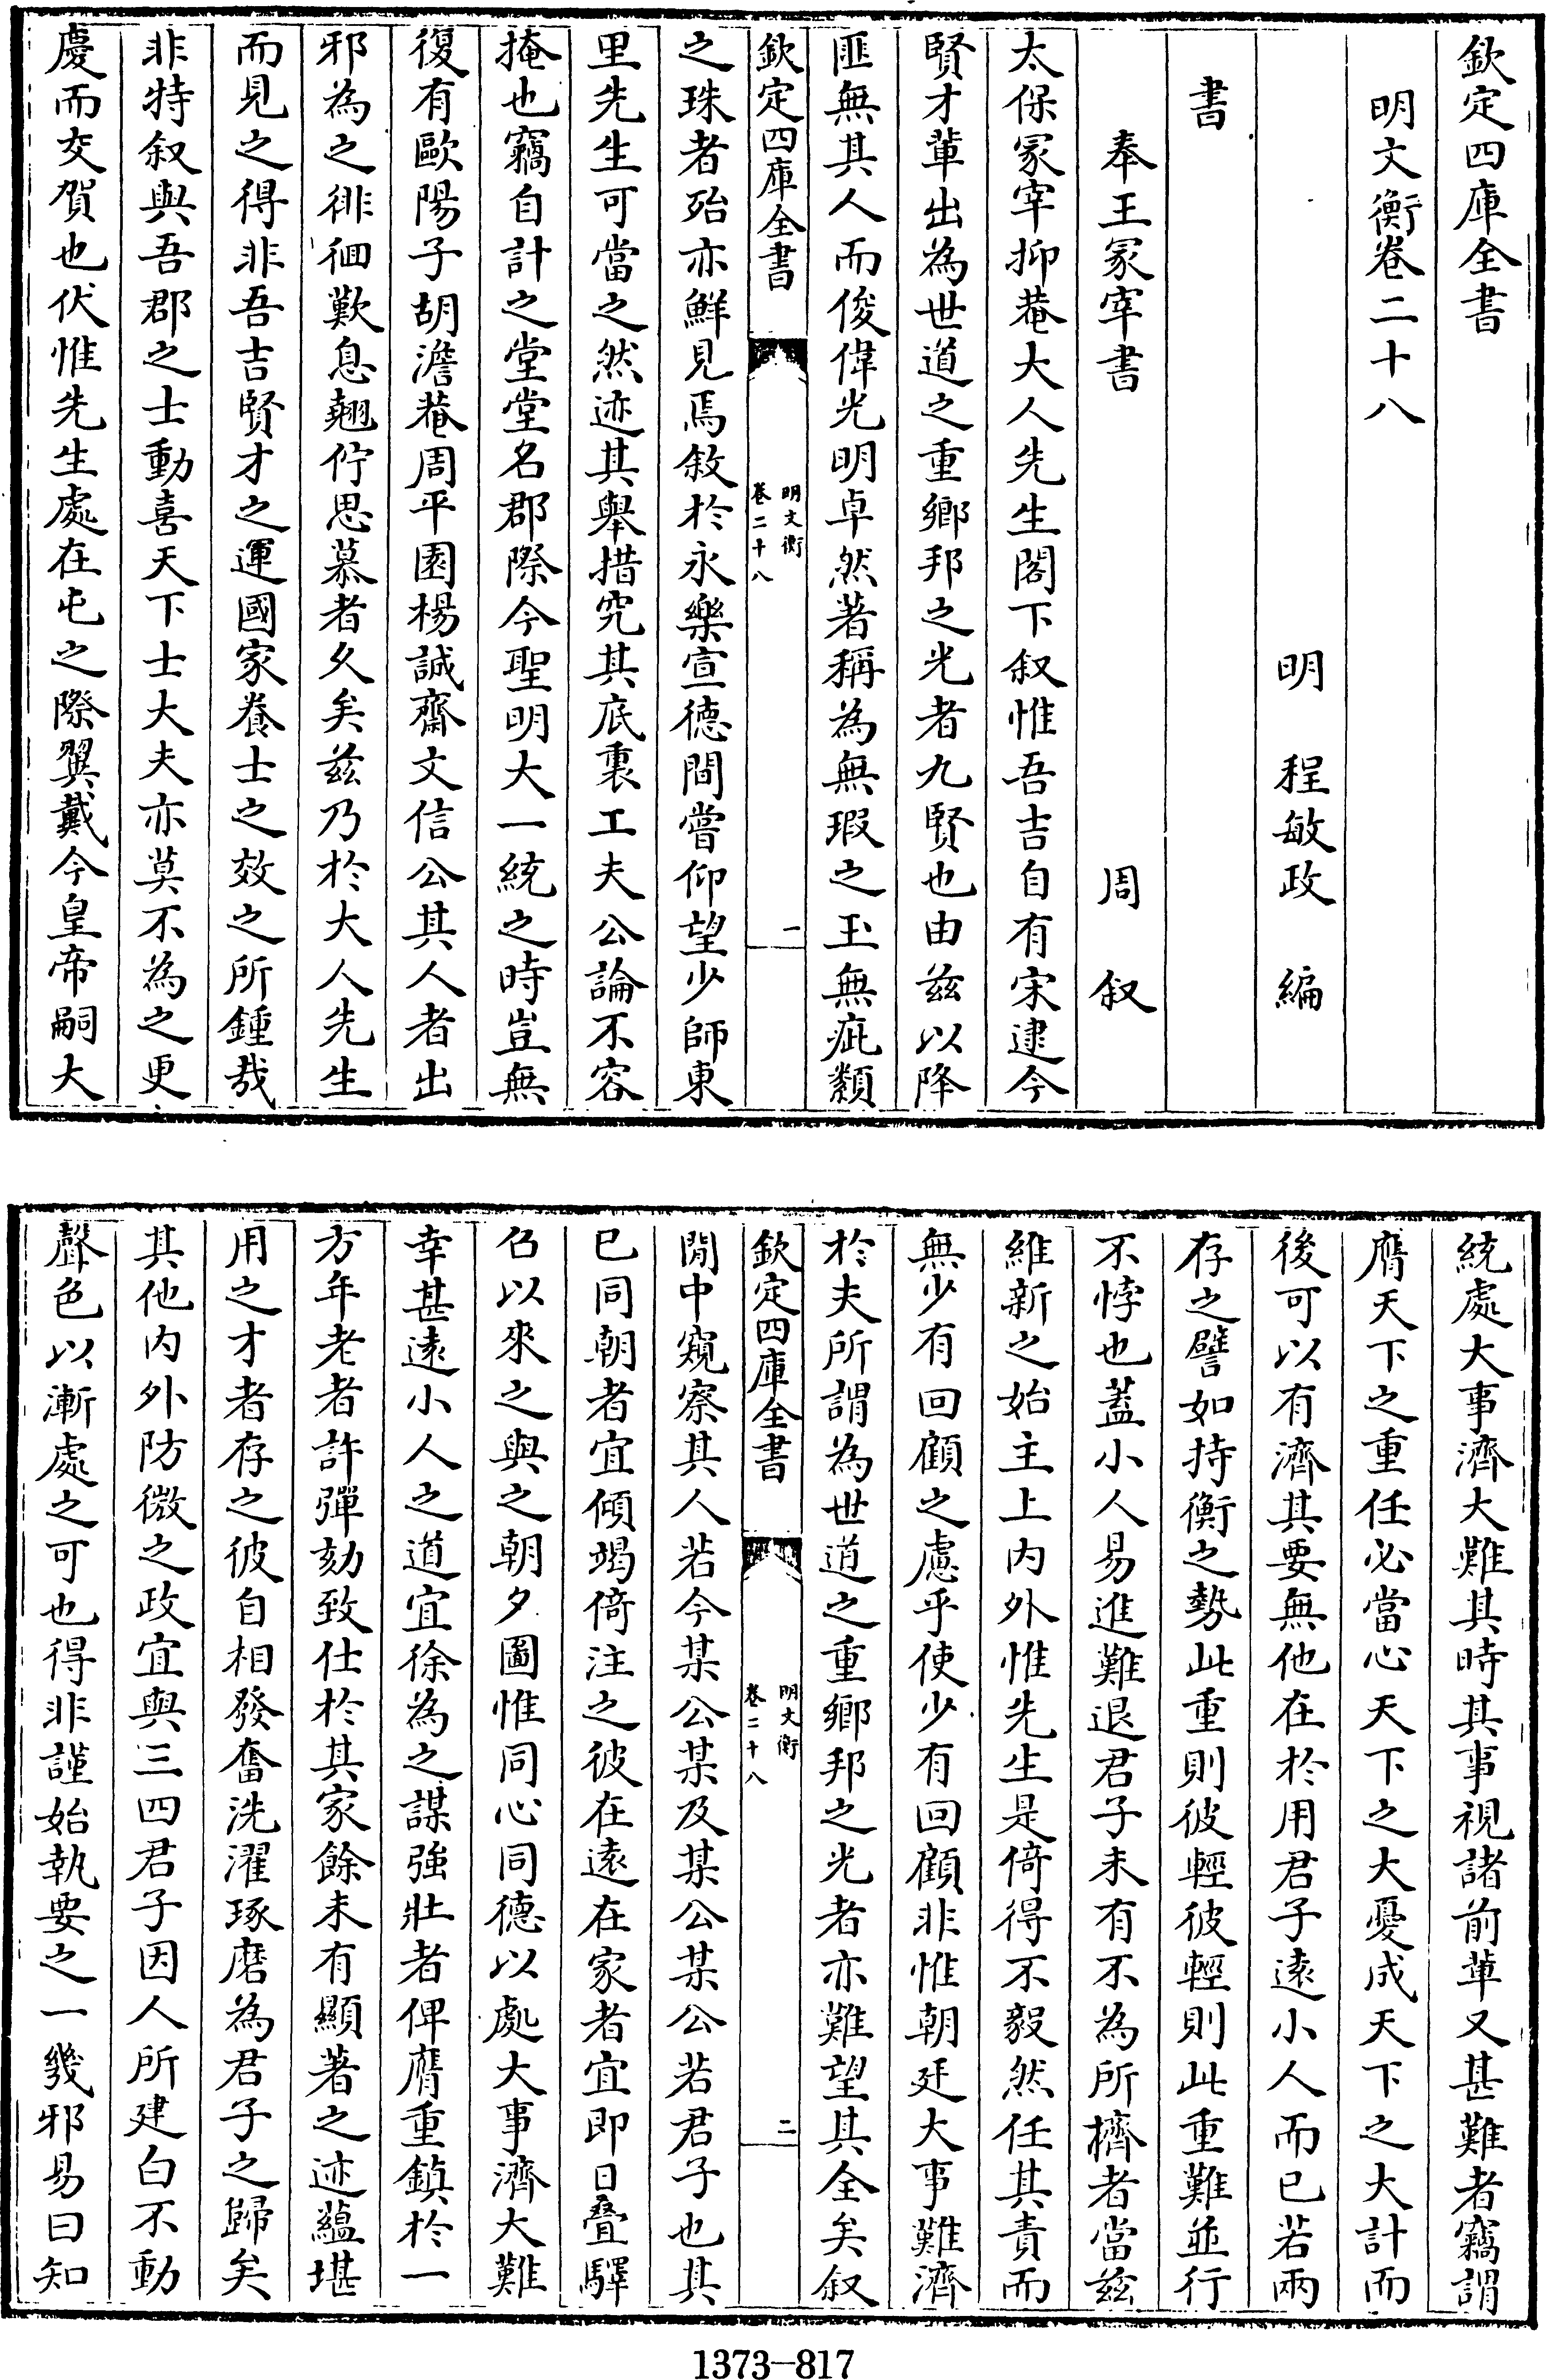 欽定四庫全書
明文衡卷二十八
明 程敏政 編
書
奉王冡宰書 周 叙
太保冡宰抑菴大人先生閣下叙惟吾吉自有宋逮今
賢才輩出為世道之重鄉邦之光者九賢也由兹以降
匪無其人而俊偉光明卓然著稱為無瑕之玉無疵纇
欽定四庫全書
明文衡
卷二十八
一
之珠者殆亦鮮見焉敘於永樂宣德間嘗仰望少師東
里先生可當之然迹其舉措究其底裏工夫公論不容
掩也竊自計之堂堂名郡際今聖明大一統之時豈無
復有歐陽子胡澹菴周平園楊誠齋文信公其人者出
邪為之徘徊歎息翹佇思慕者久矣兹乃於大人先生
而見之得非吾吉賢才之運國家養士之效之所鍾哉
非特叙與吾郡之士動喜天下士大夫亦莫不為之更
慶而交賀也伏惟先生處在屯之際翼戴今皇帝嗣大
統處大事濟大難其時其事視諸前輩又甚難者竊謂
膺天下之重任必當心天下之大憂成天下之大計而
後可以有濟其要無他在於用君子遠小人而已若兩
存之譬如持衡之勢此重則彼輕彼輕則此重難並行
不悖也蓋小人易進難退君子未有不為所擠者當兹
維新之始主上内外惟先生是倚得不毅然任其責而
無少有回顧之慮乎使少有回顧非惟朝廷大事難濟
於夫所謂為世道之重鄉邦之光者亦難望其全矣叙
欽定四庫全書
明文衡
卷二十八
二
閒中窺察其人若今某公某及某公某公若君子也其
已同朝者宜傾竭倚注之彼在遠在家者宜即日疊驛
召以來之與之朝夕圖惟同心同德以處大事濟大難
幸甚遠小人之道宜徐為之謀強壯者俾膺重鎮於一
方年老者許彈劾致仕於其家餘未有顯著之迹蘊堪
用之才者存之彼自相發奮洗濯琢磨為君子之歸矣
其他内外防微之政宜與三四君子因人所建白不動
聲色以漸處之可也得非謹始執要之一幾邪易曰知
1373—817